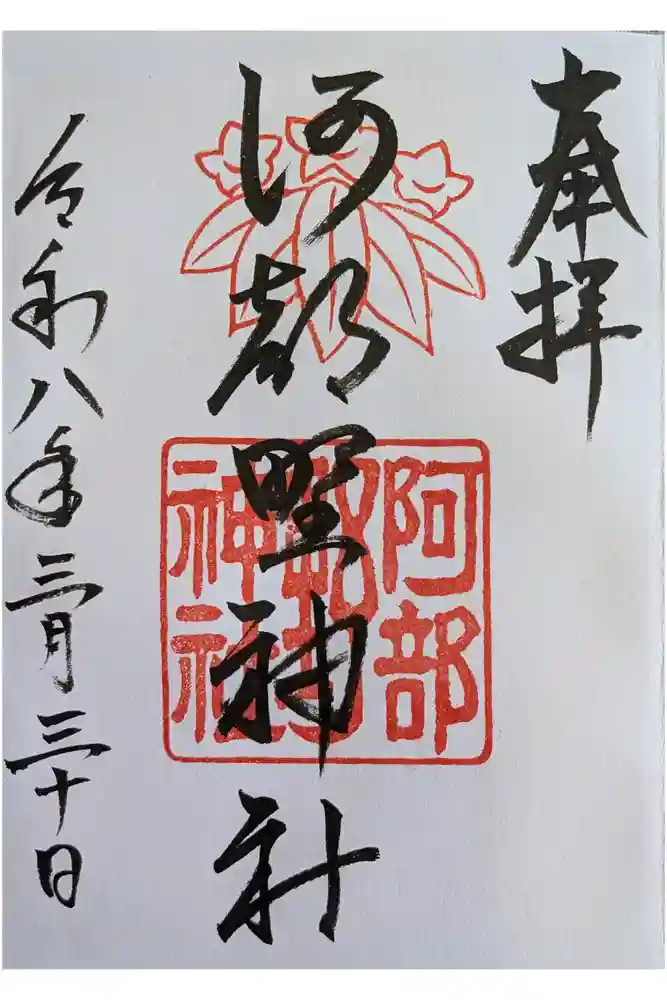 奉拝
阿部野神社
令和八年三月三十日
阿部
神社